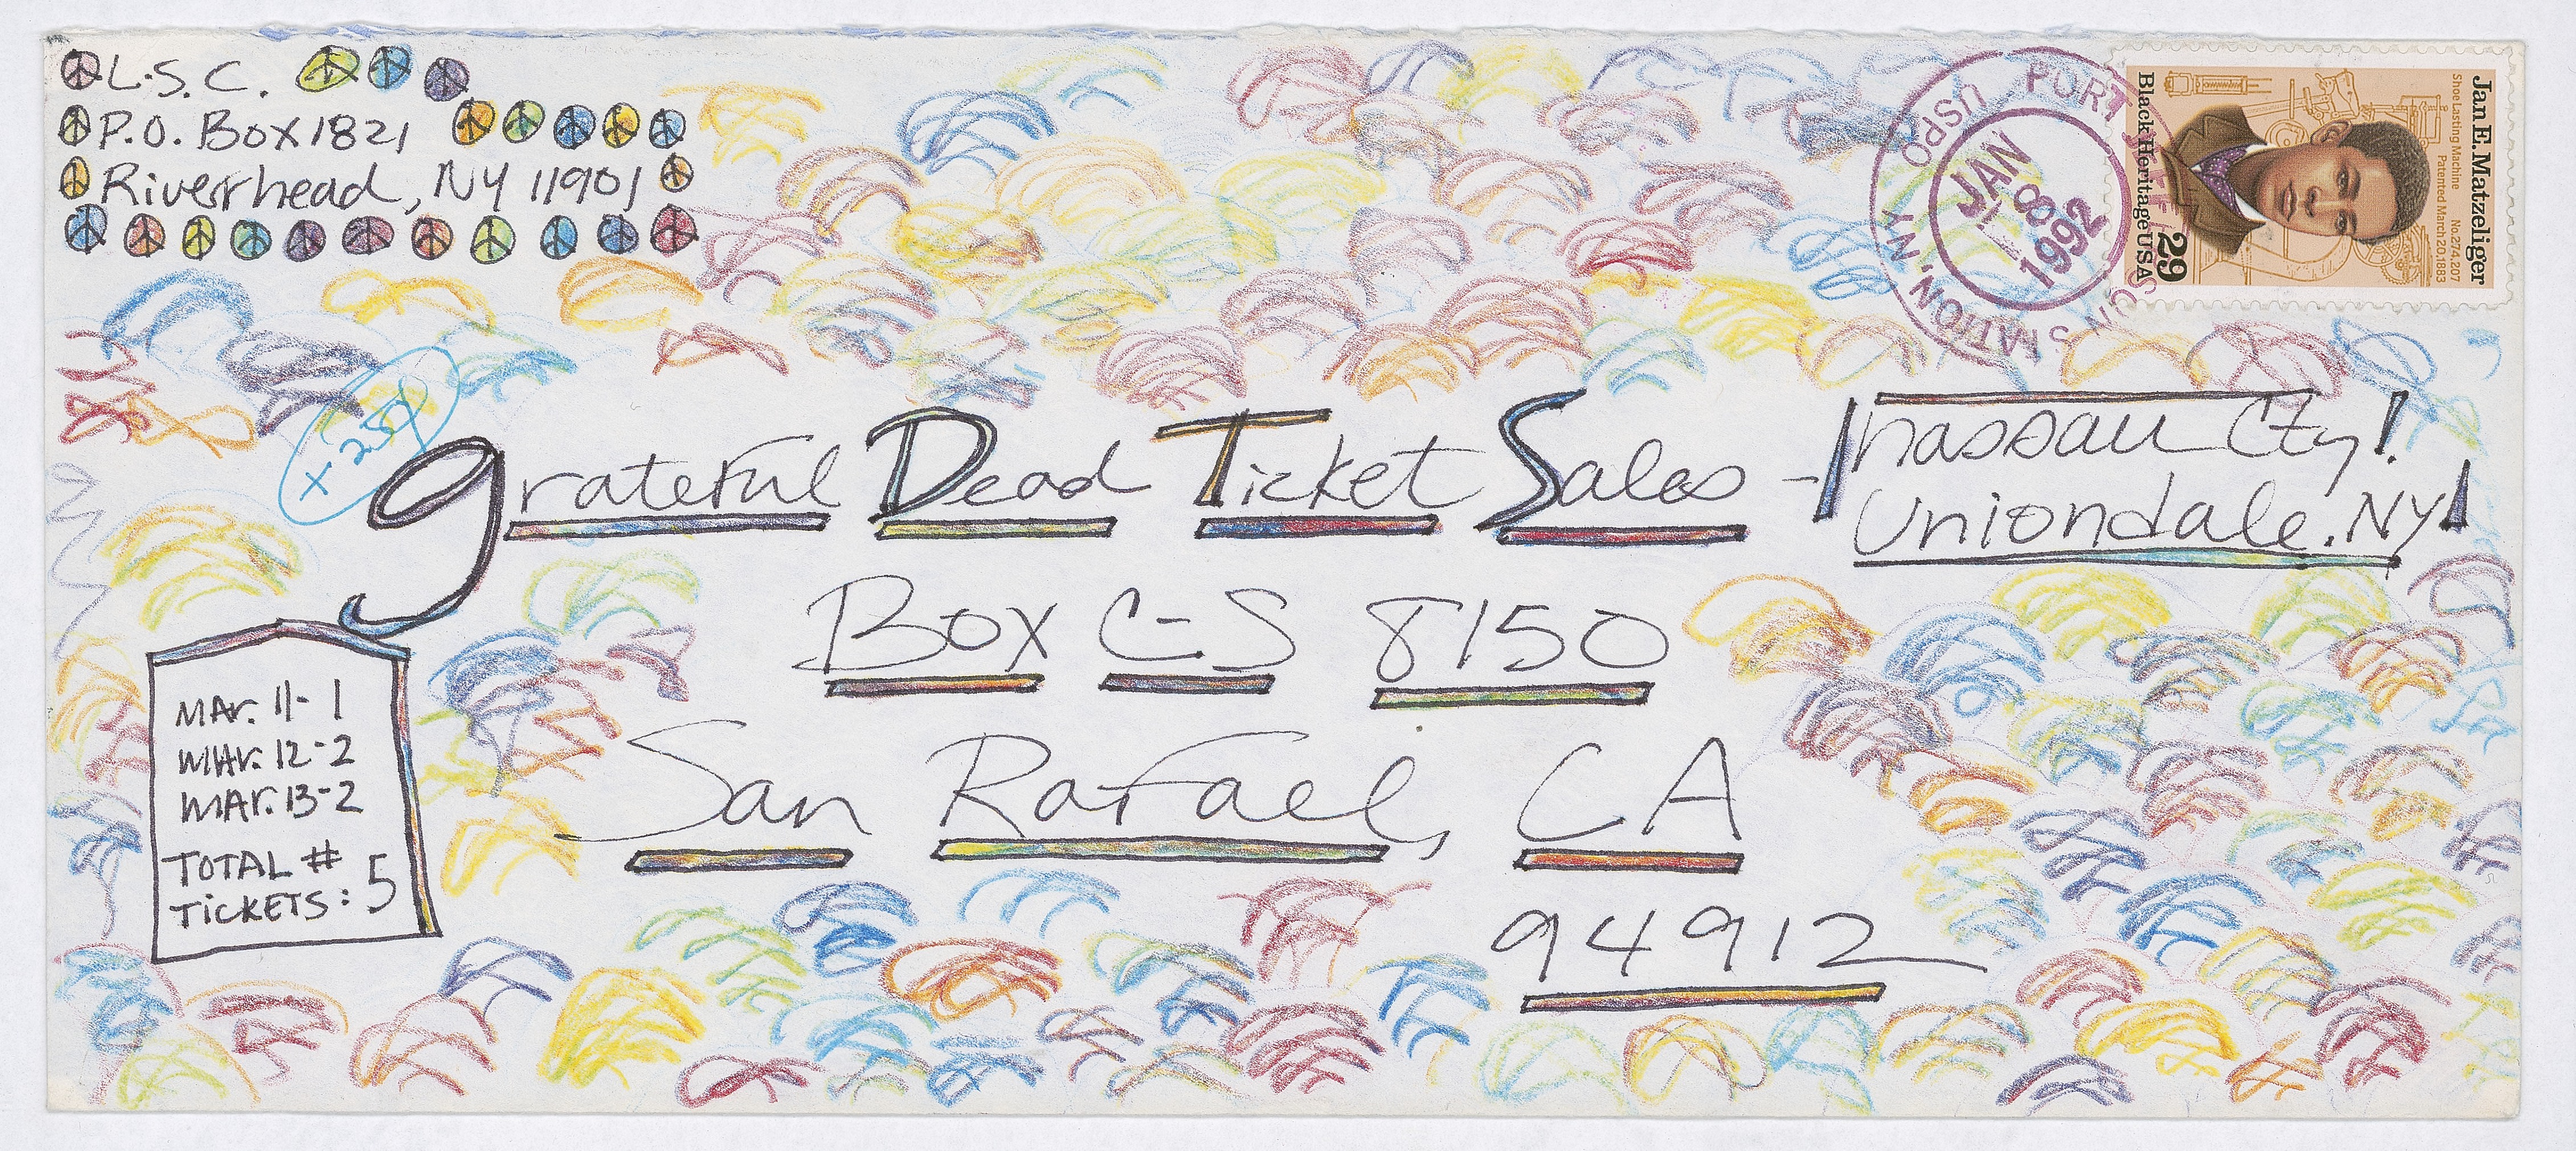 L.S.C.
P.O. Box 1821
Riverhead, NY 11901
USPO PORT
STATION, NY
JAN 8 1992
Jan E. Matzeliger
Shoe Lasting Machine No. 274,207
Patented March 20, 1883
29
Black Heritage USA
x 250
Grateful Dead Ticket Sales - nassau Cty!
Uniondale. NY!
Box C-S 8150
San Rafael, CA
94912
MAr. 11- 1
MAr. 12-2
MAr. 13-2
TOTAL #
TiCKETS: 5